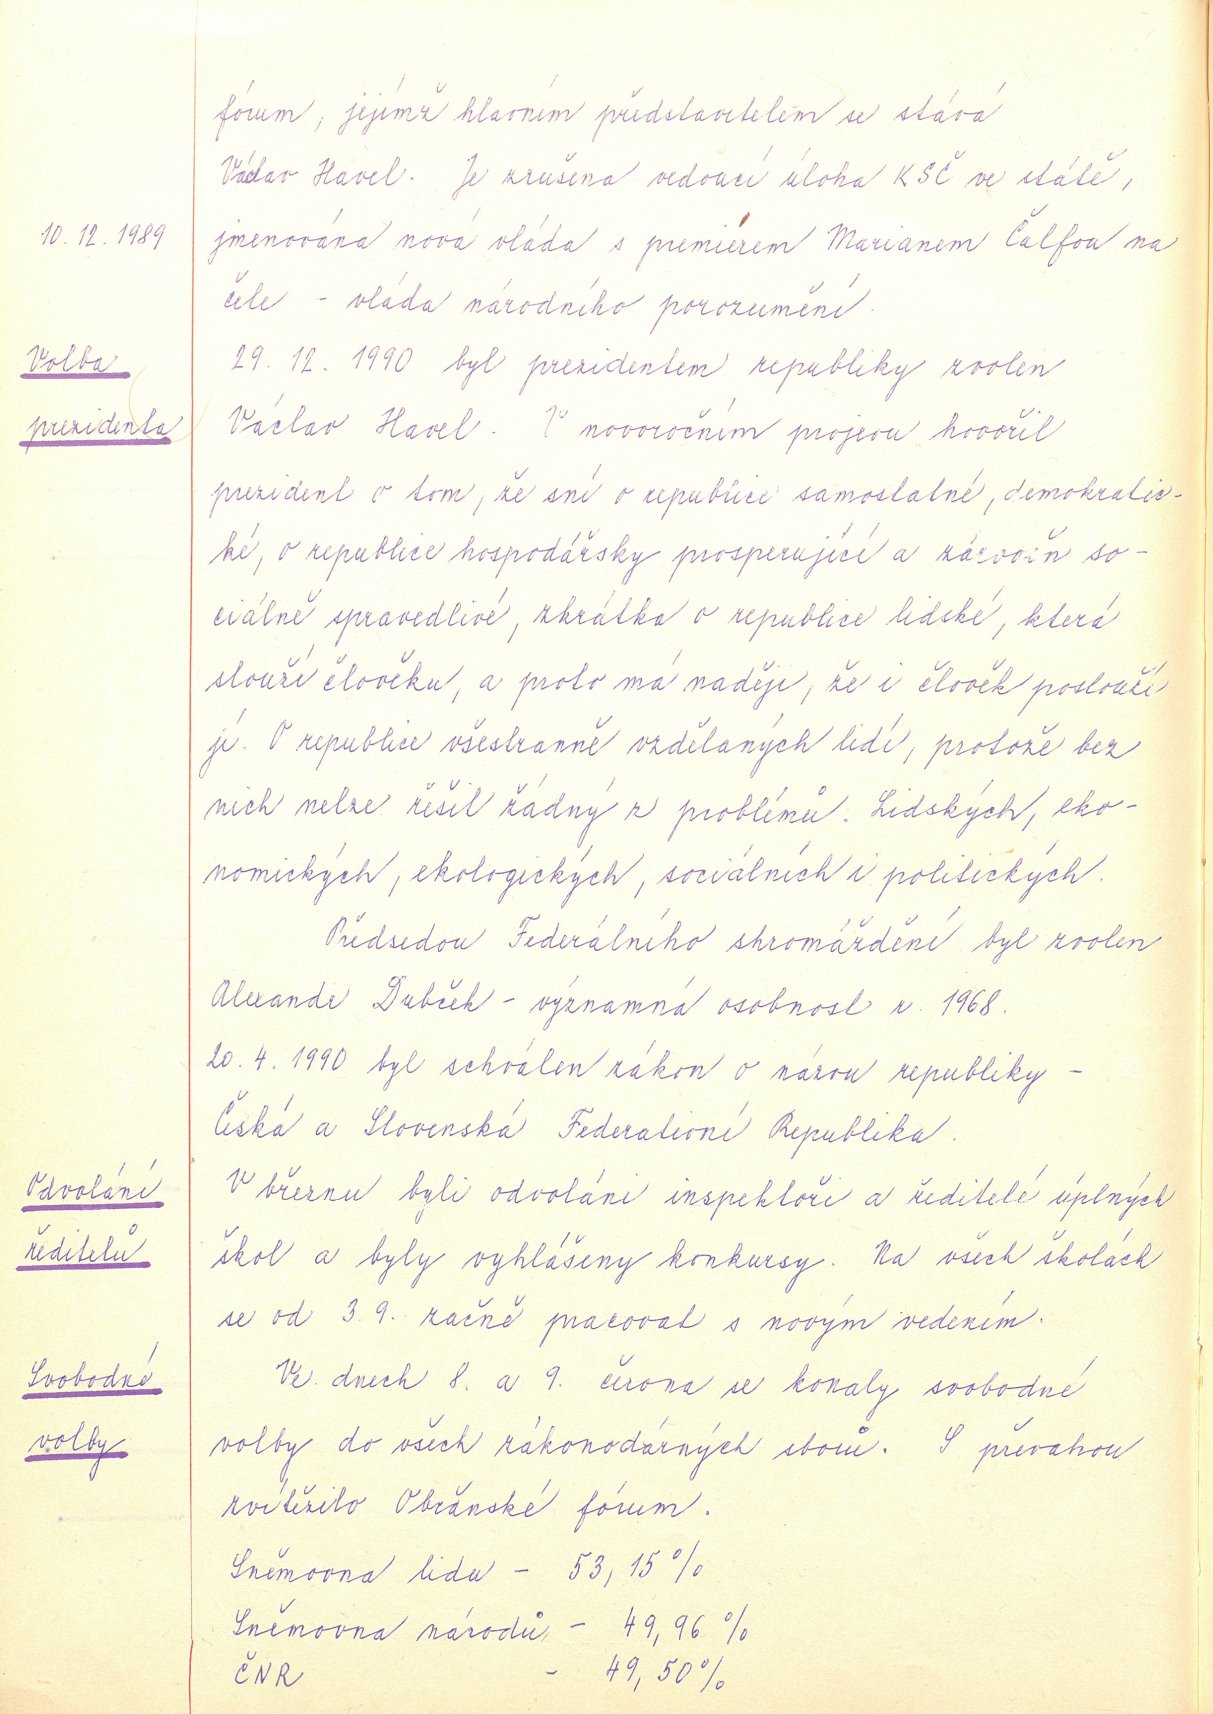 fórum, jejímž hlavním představitelem se stává
Václav Havel. Je zrušena vedoucí úloha KSČ ve státě,
10.12.1989 jmenována nová vláda s premiérem Marianem Čalfou na
čele - vláda národního porozumění.
Volba 29. 12. 1990 byl prezidentem republiky zvolen
prezidenta Václav Havel. V novoročním projevu hovořil
prezident o tom, že sní o republice samostatné, demokratic-
ké, o republice hospodářsky prosperující a zároveň so-
ciálně spravedlivé, zkrátka o republice lidské, která
slouží člověku, a proto má naději, že i člověk poslouží
jí. O republice všestranně vzdělaných lidí, protože bez
nich nelze řešit žádný z problémů. Lidských, eko-
nomických, ekologických, sociálních i politických.
Předsedou Federálního shromáždění byl zvolen
Alexande Dubček - významná osobnost r. 1968.
20. 4. 1990 byl schválen zákon o názvu republiky -
Česká a Slovenská Federativní Republika.
Odvolání V březnu byli odvoláni inspektoři a ředitelé úplných
ředitelů škol a byly vyhlášeny konkursy. Na všech školách
se od 3.9. začně pracovat s novým vedením.
Svobodné Ve dnech 8. a 9. června se konaly svobodné
volby volby do všech zákonodárných sborů. S převahou
zvítězilo Občanské fórum.
Sněmovna lidu - 53,15%
Sněmovna národů - 49,96 %
ČNR - 49,50%